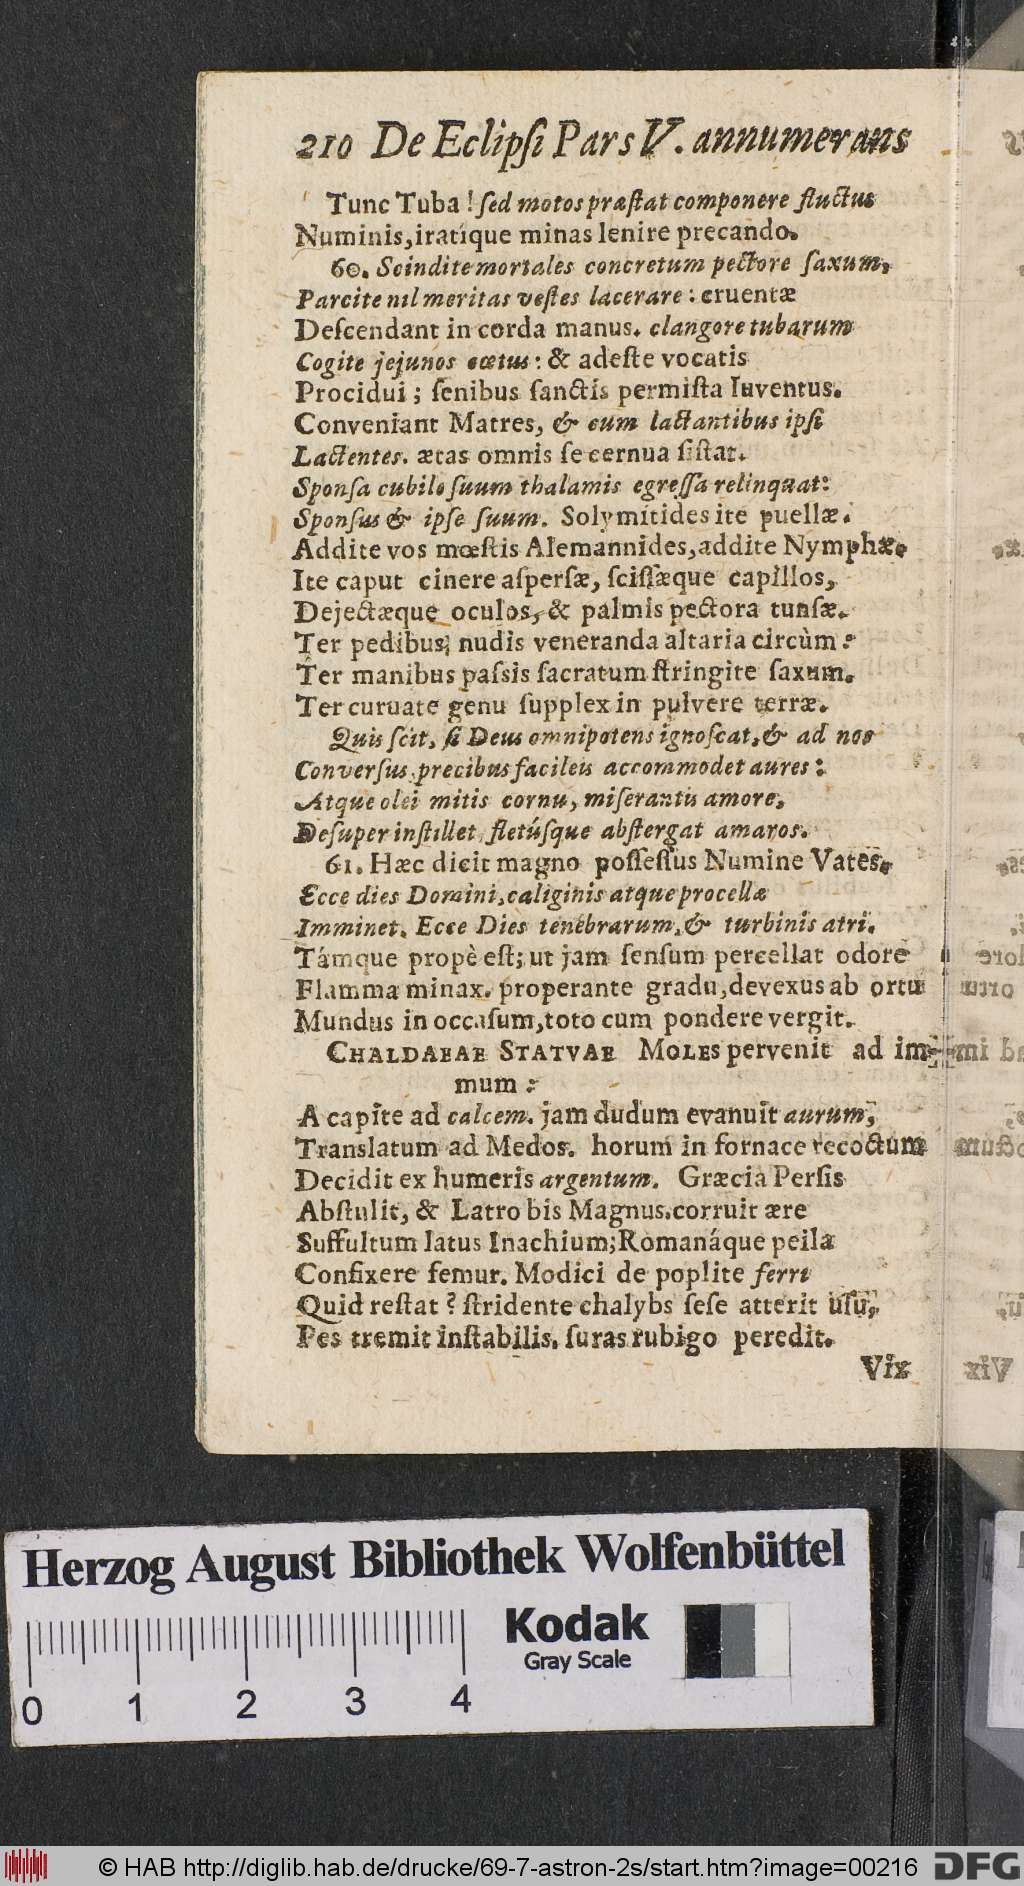 210 De Eclipſi Pars V. annumerans
Tunc Tuba! ſed motos præſtat componere fluctus
Numinis, iratíque minas lenire precando.
60. Scindite mortales concretum pectore ſaxum,
Parcite nil meritas veſtes lacerare: cruentæ
Deſcendant in corda manus. clangore tubarum
Cogite jejunos cœtus: & adeſte vocatis
Procidui; ſenibus ſanctis permiſta Iuventus.
Conveniant Matres, & cum lactantibus ipſi
Lactentes. ætas omnis ſe cernua ſiſtat.
Sponſa cubile ſuum thalamis egreſſa relinquat:
Sponſus & ipſe ſuum. Solymitides ite puellæ.
Addite vos mœſtis Alemannides, addite Nymphæ.
Ite caput cinere aſperſæ, ſciſſæque capillos,
Dejectæque oculos, & palmis pectora tunſæ.
Ter pedibus nudis veneranda altaria circùm:
Ter manibus paſsis ſacratum ſtringite ſaxum.
Ter curuate genu ſupplex in pulvere terræ.
Quis ſcit, ſi Deus omnipotens ignoſcat, & ad nos
Converſus precibus facileis accommodet aures:
Atque olei mitis cornu, miſerantis amore,
Deſuper inſtillet, fletúſque abſtergat amaros.
61. Hæc dicit magno poſſeſſus Numine Vates.
Ecce dies Domini, caliginis atque procellæ
Imminet. Ecce Dies tenebrarum, & turbinis atri.
Támque propè eſt; ut jam ſenſum percellat odore
Flamma minax. properante gradu, devexus ab ortu
Mundus in occaſum, toto cum pondere vergit.
CHALDAEAE STATVAE MOLES pervenit ad im-
mum:
A capite ad calcem. jam dudum evanuit aurum,
Translatum ad Medos. horum in fornace recoctum
Decidit ex humeris argentum. Græcia Perſis
Abſtulit, & Latro bis Magnus. corruit ære
Suffultum latus Inachium; Romanáque peila
Confixere femur. Modici de poplite ferri
Quid reſtat? ſtridente chalybs ſeſe atterit uſu,
Pes tremit inſtabilis. ſuras rubigo peredit.
Vix
Herzog August Bibliothek Wolfenbüttel
Kodak
Gray Scale
0 1 2 3 4
© HAB http://diglib.hab.de/drucke/69-7-astron-2s/start.htm?image=00216
DFG